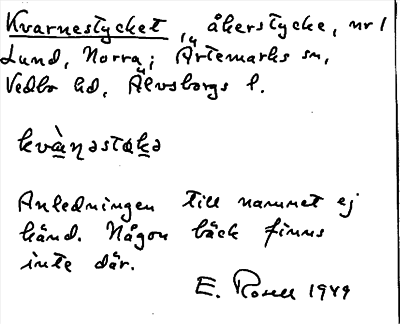 Kvarnestycket, åkerstycke, nr 1
Lund, Norra; Ärtemarks sn,
Vedbo hd, Älvsborgs l.
kvàṇəstakə
Anledningen till namnet ej
känd. Någon bäck finns
inte där.
E. Rosell 1949